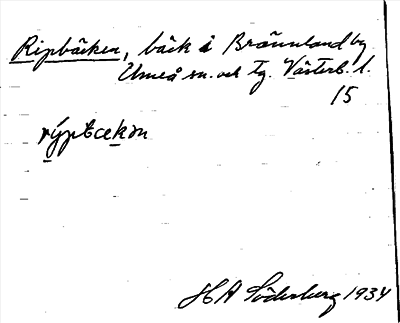 Ripbäcken, bäck i Brännland by
Umeå sn. och tg. Västerb. l.
15
rýptcekɘn
HA Söderberg 1934